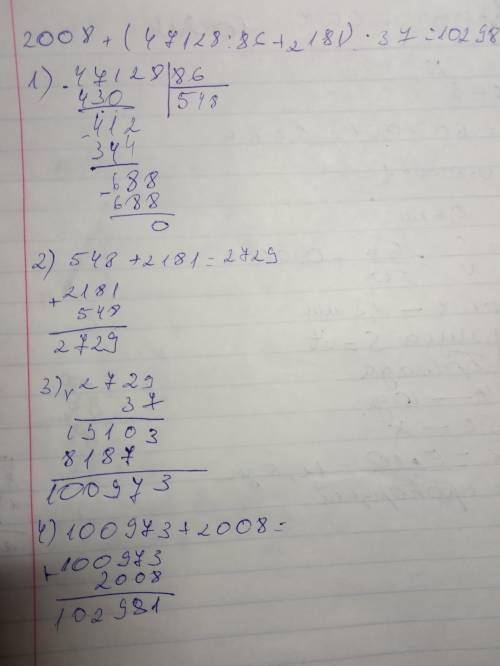 2008 + (47128:86+2181) · 37 = 10298
1) 47128 | 86
430 | 548
-412
344
-688
688
0
2) 548 + 2181 = 2729
+2181
548
2729
3) x 2729
37
19103
8187
100973
4) 100973 + 2008 =
+100973
2008
102981